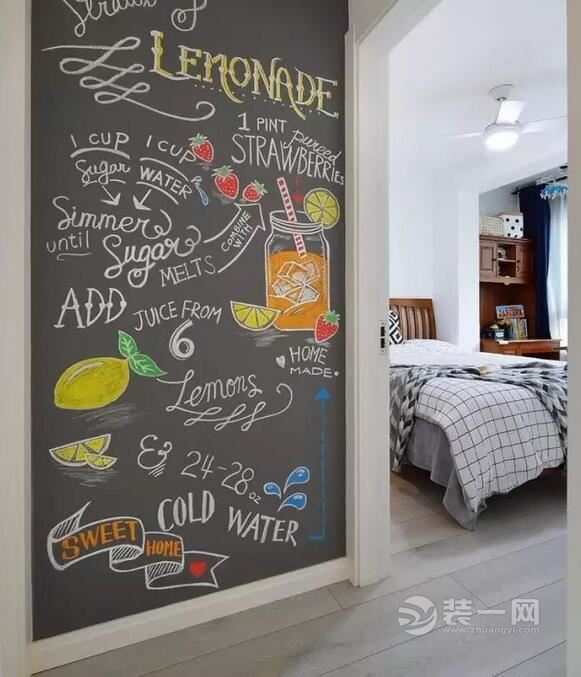 LEMONADE
1 PINT
pureed
STRAWBERRIES
1 CUP 1 CUP
Sugar WATER
Simmer
until Sugar
MELTS
COMBINE WITH
ADD JUICE FROM
6
HOME MADE
Lemons
& 24-28 oz
COLD WATER
SWEET HOME
装一网
www.zhuangyi.com